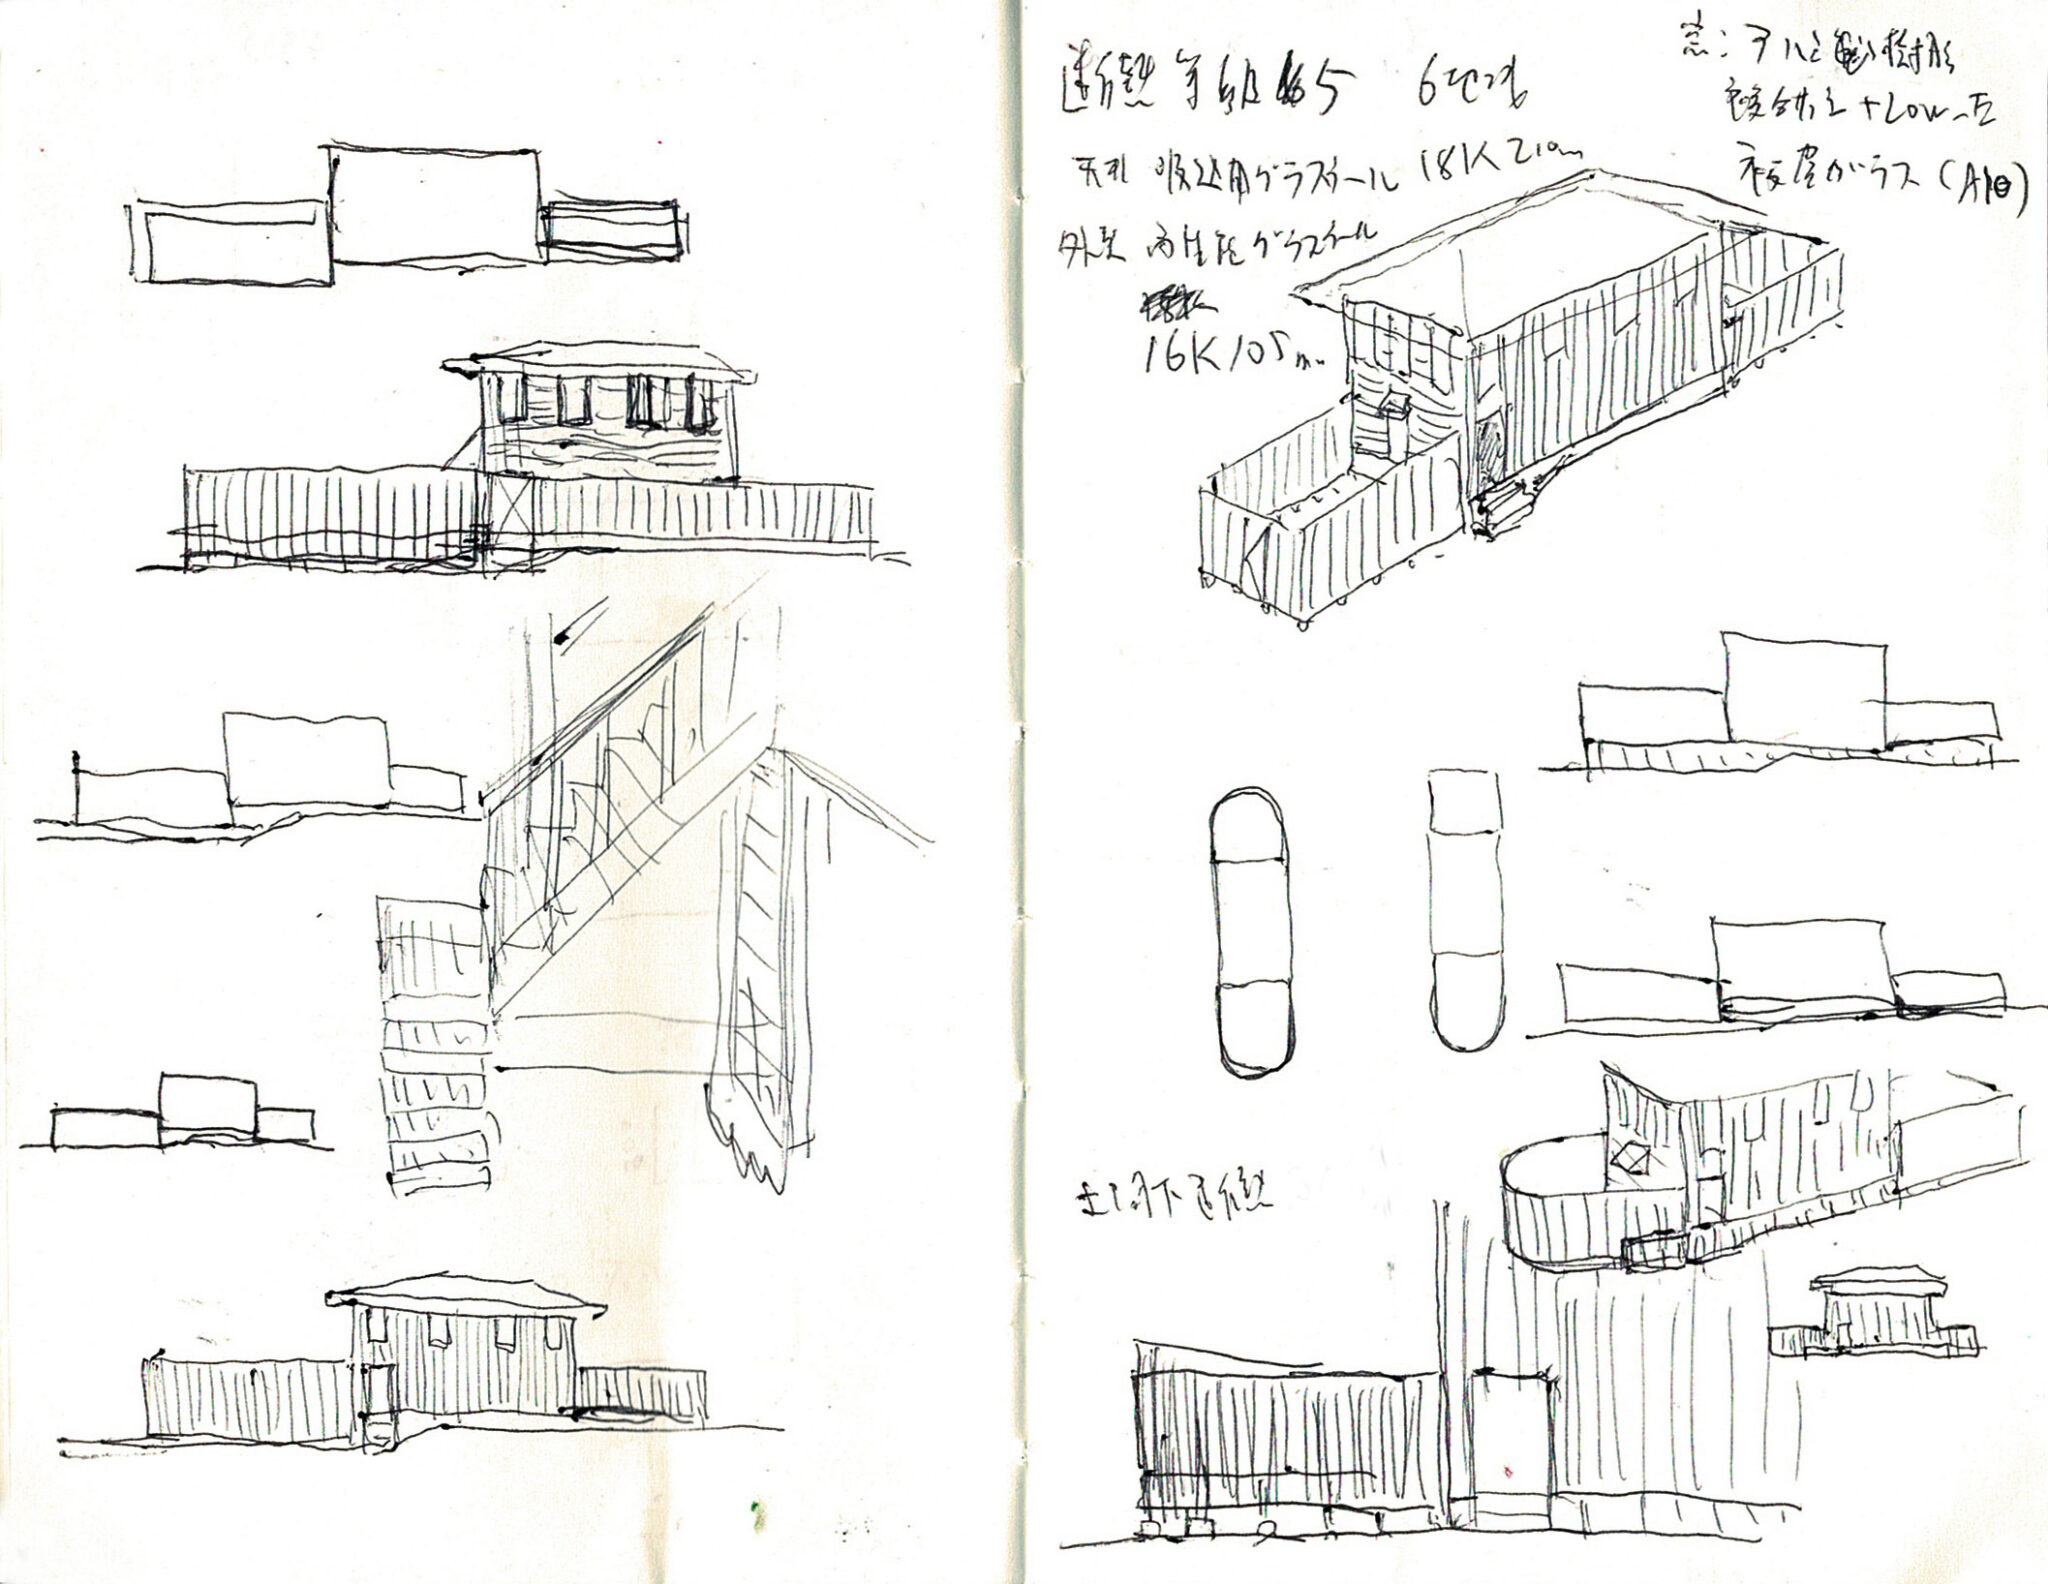 断熱等級 5 6地域
天井 吹込用グラスウール 18K 210mm
外壁 高性能グラスウール
16K 105mm
窓：アルミ樹脂
複合サッシ + Low-E
複層ガラス (A10)
土間下断熱